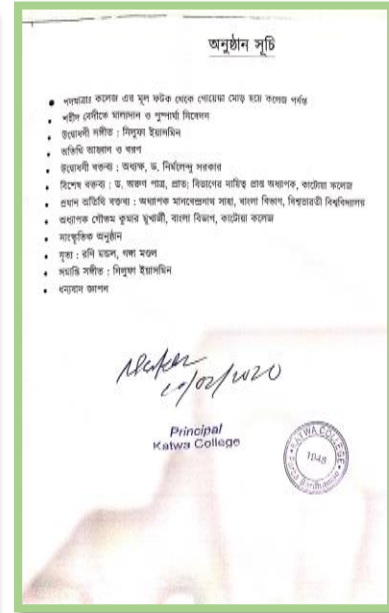 অনুষ্ঠান সূচি
পদযাত্রাঃ কলেজ এর মূল ফটক থেকে গোয়েঙ্কা মোড় হয়ে কলেজ পর্যন্ত
শহীদ বেদীতে মাল্যদান ও পুষ্পার্ঘ্য নিবেদন
উদ্বোধনী সঙ্গীত : নিলুফা ইয়াসমিন
অতিথি আহ্বান ও বরণ
উদ্বোধনী বক্তব্য : অধ্যক্ষ, ড. নির্মলেন্দু সরকার
বিশেষ বক্তব্য : ড. অরুণ পাত্র, প্রাতঃ বিভাগের দায়িত্ব প্রাপ্ত অধ্যাপক, কাটোয়া কলেজ
প্রধান অতিথি বক্তব্য : অধ্যাপক মানবেন্দ্রনাথ সাহা, বাংলা বিভাগ, বিশ্বভারতী বিশ্ববিদ্যালয়
অধ্যাপক গৌতম কুমার মুখার্জী, বাংলা বিভাগ, কাটোয়া কলেজ
সাংস্কৃতিক অনুষ্ঠান
নৃত্য : রনি মন্ডল, গঙ্গা মণ্ডল
সমাপ্তি সঙ্গীত : নিলুফা ইয়াসমিন
ধন্যবাদ জ্ঞাপন
Principal
Katwa College
KATWA COLLEGE
1948
Purba Bardhaman